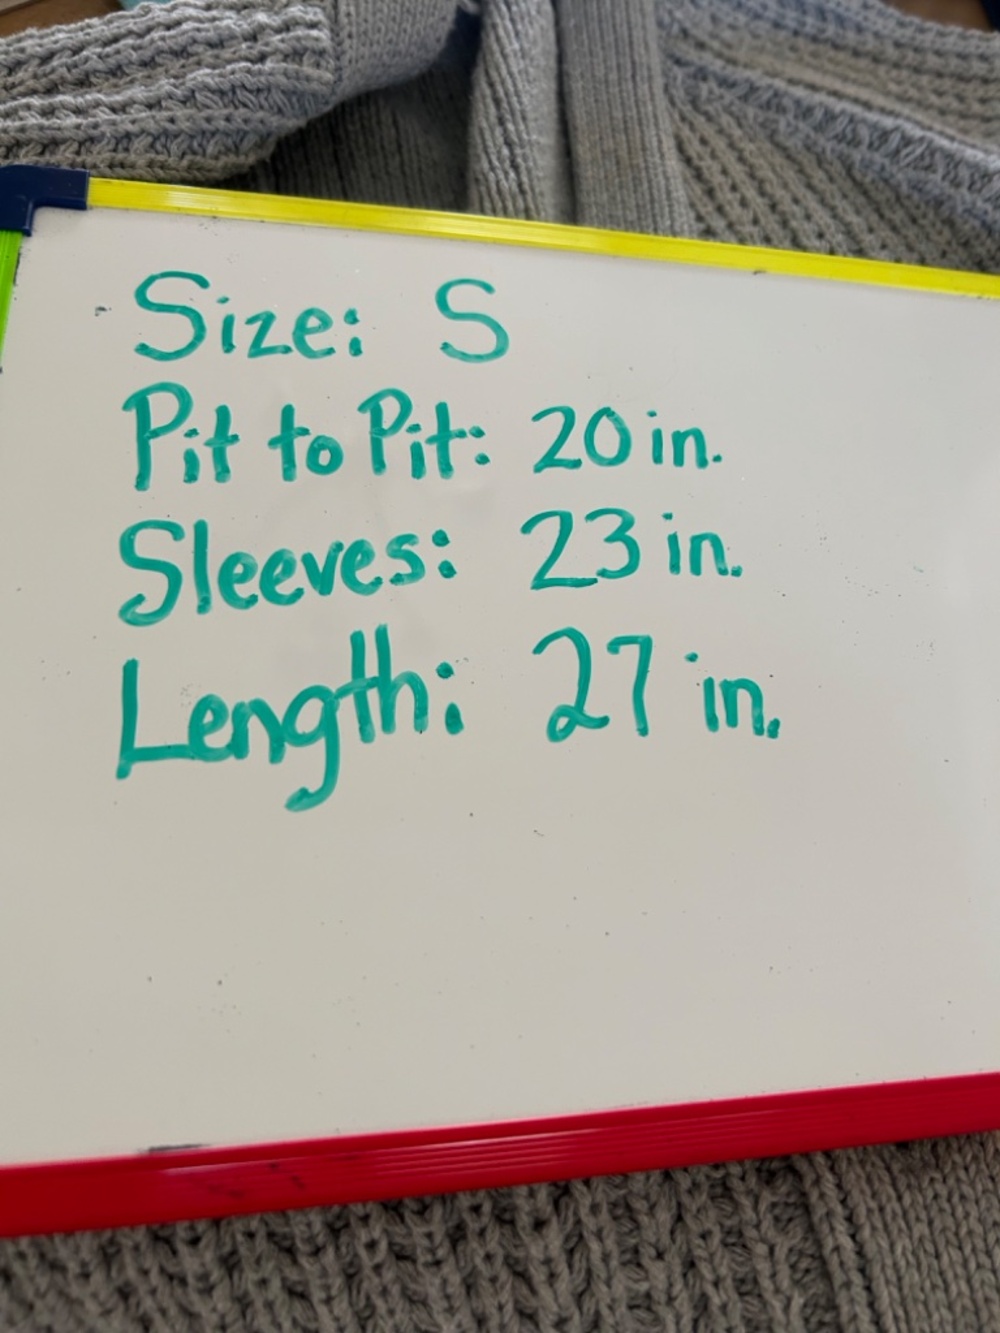 Size: S
Pit to Pit: 20 in.
Sleeves: 23 in.
Length: 27 in.